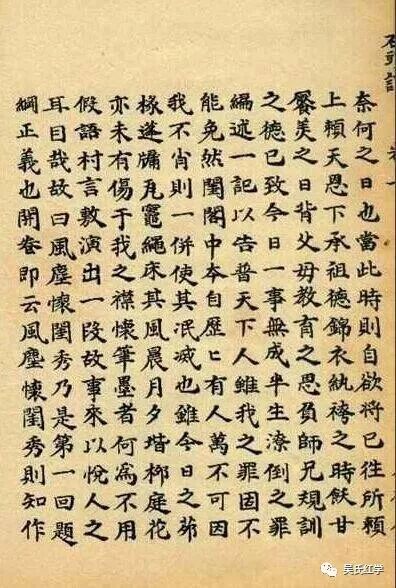 石頭記
奈何之日也當此時則自欲將已往所賴
上賴天恩下承祖德錦衣紈袴之時飫甘
饜美之日背父母教育之恩負師兄規訓
之德已致今日一事無成半生潦倒之罪
編述一記以告普天下人雖我之罪固不
能免然閨閣中本自歷ヒ有人萬不可因
我不肖則一併使其泯滅也雖今日之茆
椽蓬牖瓦竈繩床其風晨月夕堦栁庭花
亦未有傷于我之襟懷筆墨者何為不用
假語村言敷演出一段故事來以悅人之
耳目哉故曰風塵懷閨秀乃是第一回題
綱正義也開卷即云風塵懷閨秀則知作
吴氏红学